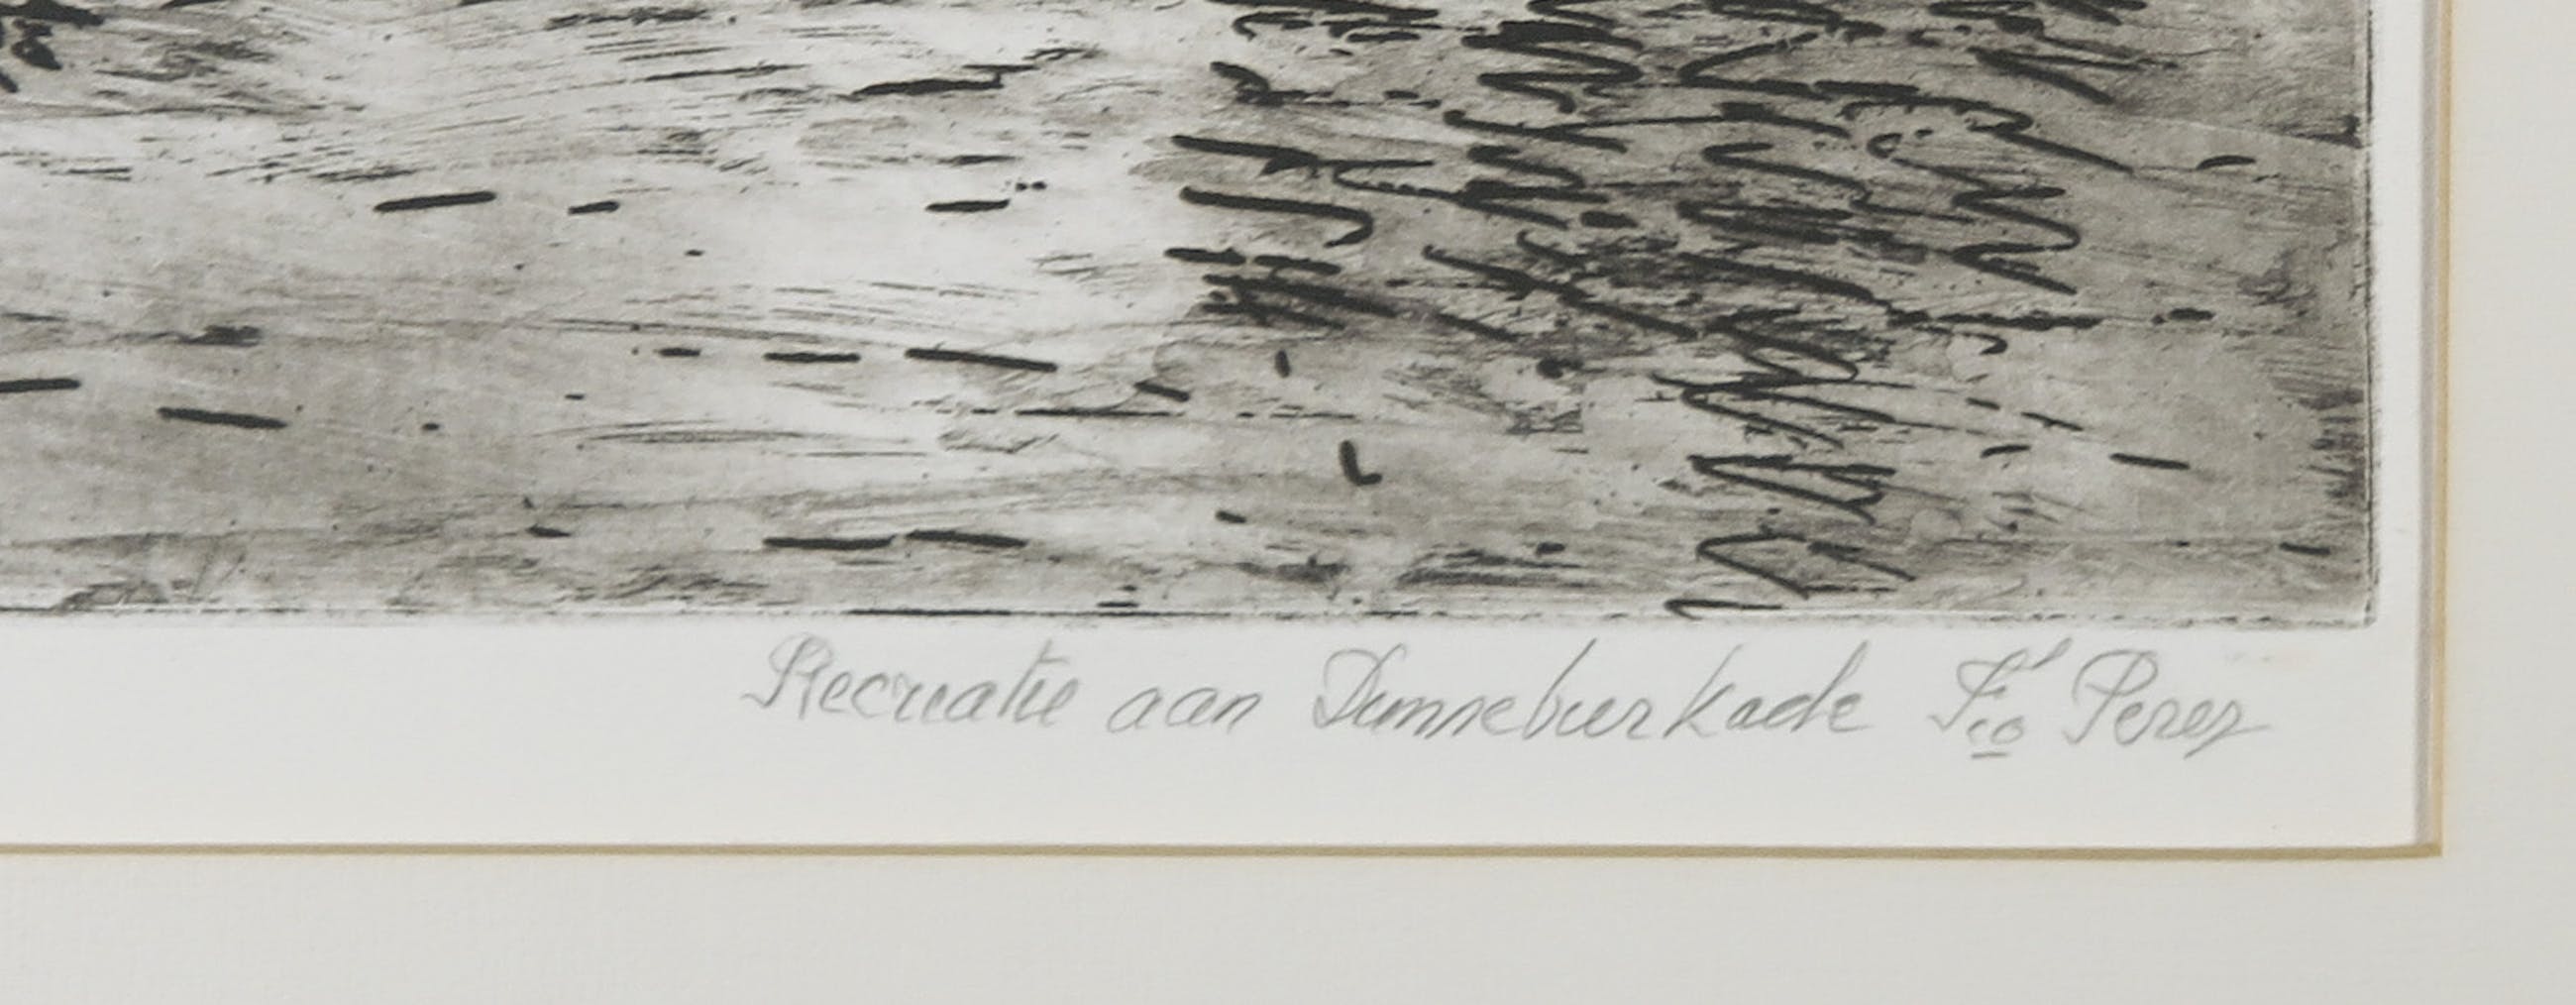 Recreatie aan Dunnebierkade Fco Perez